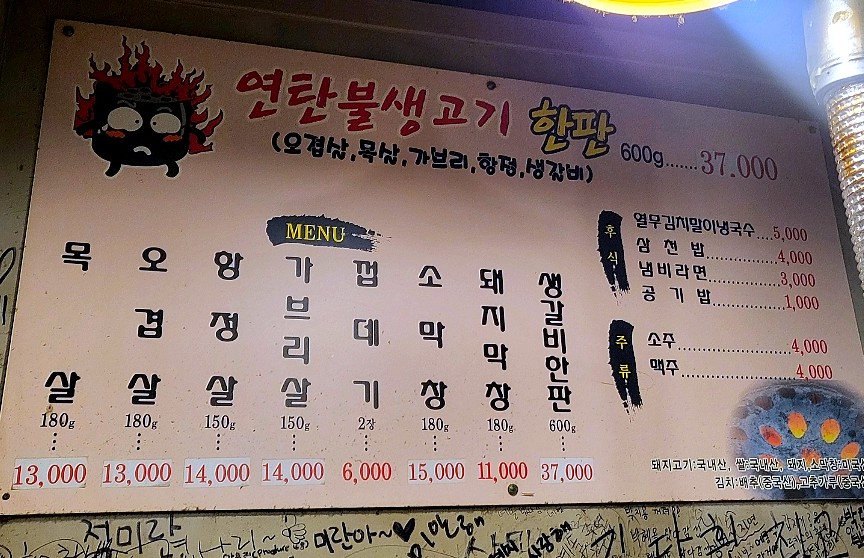 연탄불생고기 한판
(오겹살,목살,가브리,항정,생갈비) 600g.......37.000
MENU
목살 180g 13,000
오겹살 180g 13,000
항정살 150g 14,000
가브리살 150g 14,000
껍데기 2장 6,000
소막창 180g 15,000
돼지막창 180g 11,000
생갈비한판 600g 37,000
후식
열무김치말이냉국수....5,000
삼천밥 4,000
냄비라면 3,000
공기밥 1,000
주류
소주 4,000
맥주 4,000
돼지고기:국내산, 쌀:국내산, 돼지,소막창:미국산
김치:배추(중국산),고추가루(중국산
미란아~♥